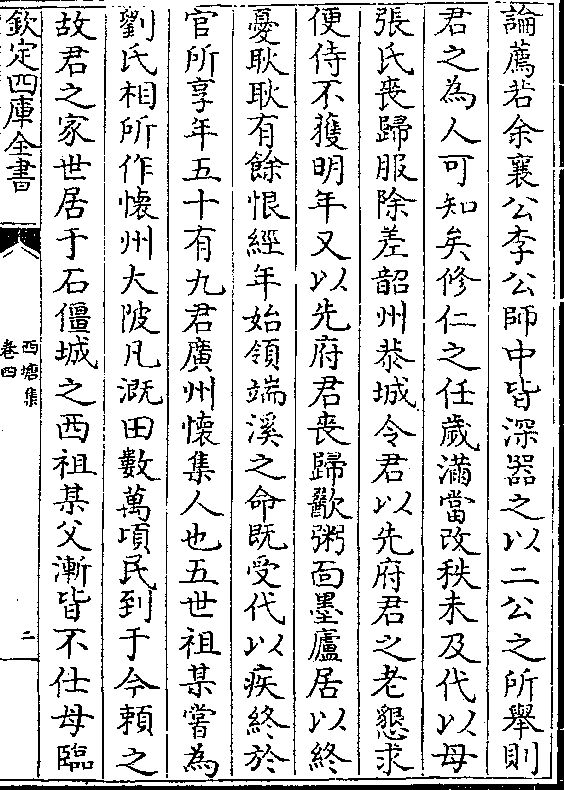 論薦若余襄公李公師中皆深器之以二公之所舉則
君之為人可知矣修仁之任歲滿當改秩未及代以母
張氏喪歸服除差韶州恭城令君以先府君之老懇求
便侍不獲明年又以先府君喪歸歠粥面墨廬居以終
憂耿耿有餘恨經年始領端溪之命既受代以疾終於
官所享年五十有九君廣州懷集人也五世祖某嘗為
劉氏相所作懷州大陂凡溉田數萬頃民到于今賴之
故君之家世居于石僵城之西祖某父漸皆不仕母臨
欽定四庫全書
西塘集
卷四
二